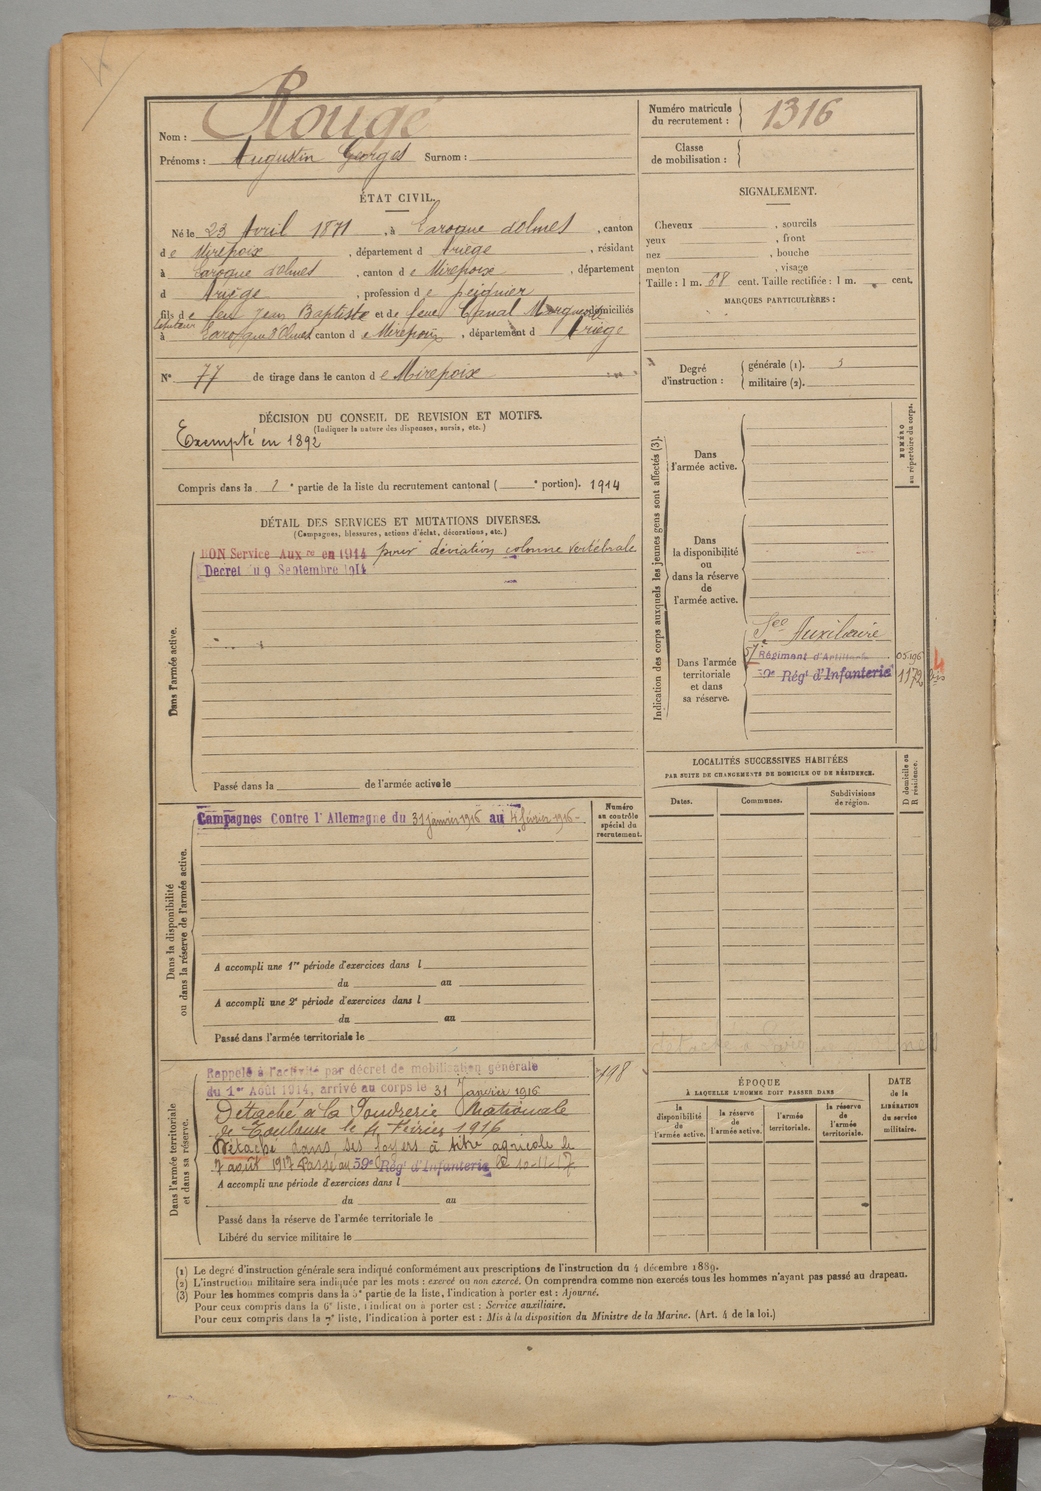 Nom : Rougé
Prénoms : Augustin Georges Surnom :
Numéro matricule du recrutement : 1316
Classe de mobilisation :
ÉTAT CIVIL.
Né le 23 Avril 1871, à Laroque d'Olmes, canton
de Mirepoix, département d Ariège, résidant
à Laroque d'Olmes, canton de Mirepoix, département
d Ariège, profession de peignier
fils de feu Jean Baptiste et de feue Canal domiciliés
à Laroque d'Olmes canton de Mirepoix, département d Ariège
N° 77 de tirage dans le canton de Mirepoix
SIGNALEMENT.
Cheveux , sourcils
yeux , front
nez , bouche
menton , visage
Taille : 1 m. 68 cent. Taille rectifiée : 1 m. cent.
MARQUES PARTICULIÈRES :
Degré d'instruction :
générale (1). 3
militaire (2).
DÉCISION DU CONSEIL DE REVISION ET MOTIFS.
(Indiquer la nature des dispenses, sursis, etc.)
Exempté en 1892
Compris dans la 2e partie de la liste du recrutement cantonal ( e portion). 1914
DÉTAIL DES SERVICES ET MUTATIONS DIVERSES.
(Campagnes, blessures, actions d'éclat, décorations, etc.)
BON Service Auxre en 1914 pour déviation colonne vertébrale
Decret du 9 Septembre 1914
Dans l'armée active.
Passé dans la de l'armée active le
Indication des corps auxquels les jeunes gens sont affectés (3).
NUMÉRO au répertoire du corps.
Dans l'armée active.
Dans la disponibilité ou dans la réserve de l'armée active.
Dans l'armée territoriale et dans sa réserve.
Sce Auxiliaire
57e Régiment d'Artillerie
59e Régt d'Infanterie
LOCALITÉS SUCCESSIVES HABITÉES
PAR SUITE DE CHANGEMENTS DE DOMICILE OU DE RÉSIDENCE.
Dates. Communes. Subdivisions de région. D domicile ou R résidence.
Dans la disponibilité ou dans la réserve de l'armée active.
Numéro au contrôle spécial du recrutement.
Campagnes Contre l'Allemagne du 31 janvier 1916 au 4 février 1916
A accompli une 1re période d'exercices dans l
du au
A accompli une 2e période d'exercices dans l
du au
Passé dans l'armée territoriale le
Dans l'armée territoriale et dans sa réserve.
Rappelé à l'activité par décret de mobilisation générale
du 1er Août 1914, arrivé au corps le 31 Janvier 1916
198
Détaché à la Poudrerie Nationale
de Toulouse le 4 Février 1916
Détaché dans ses foyers à titre agricole le
7 août 1917 Passé au 59e Régt d'Infanterie le
A accompli une période d'exercices dans l
du au
Passé dans la réserve de l'armée territoriale le
Libéré du service militaire le
ÉPOQUE
À LAQUELLE L'HOMME DOIT PASSER DANS
la disponibilité de l'armée active. la réserve de l'armée active. l'armée territoriale. la réserve de l'armée territoriale.
DATE de la LIBÉRATION du service militaire.
(1) Le degré d'instruction générale sera indiqué conformément aux prescriptions de l'instruction du 4 décembre 1889.
(2) L'instruction militaire sera indiquée par les mots : exercé ou non exercé. On comprendra comme non exercés tous les hommes n'ayant pas passé au drapeau.
(3) Pour les hommes compris dans la 5e partie de la liste, l'indication à porter est : Ajourné.
Pour ceux compris dans la 6e liste, l'indication à porter est : Service auxiliaire.
Pour ceux compris dans la 7e liste, l'indication à porter est : Mis à la disposition du Ministre de la Marine. (Art. 4 de la loi.)